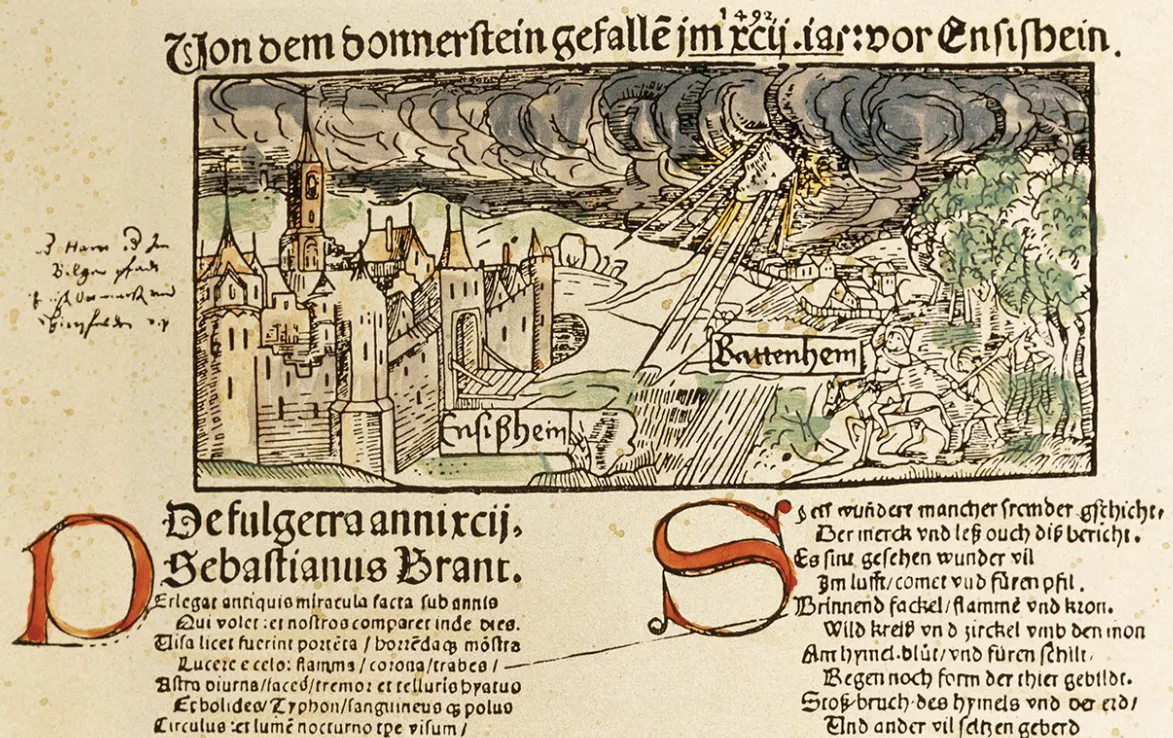 1492
Von dem donnerstein gefallē jm xcij. iar: vor Ensishein.
Battenhem
Ensißhein
De fulgetra anni xcij.
Sebastianus Brant.
Perlegat antiquis miracula facta sub annis
Qui volet: et nostros comparet inde dies.
Uisa licet fuerint portēta / horrēdaqȝ mōstra
Lucere e celo: flamma / corona / trabes /
Astra diurna / faces / tremor et telluris hyatus
Et bolides / Typhon / sanguineus qȝ polus
Circulus: et lumē nocturno tpe visum /
Sich wundert mancher fremder gschicht,
Der merck vnd leß ouch diß bericht.
Es sint gesehen wunder vil
Jm lufft / comet vnd füren pfil.
Brinnend fackel / flammē vnd kron.
Wild kreiß vnd zirckel vmb den mon
Am hymel. blůt / vnd füren schilt,
Regen noch form der thier gebildt.
Stoß bruch des hymels vnd der erd /
Und ander vil seltzen geberd